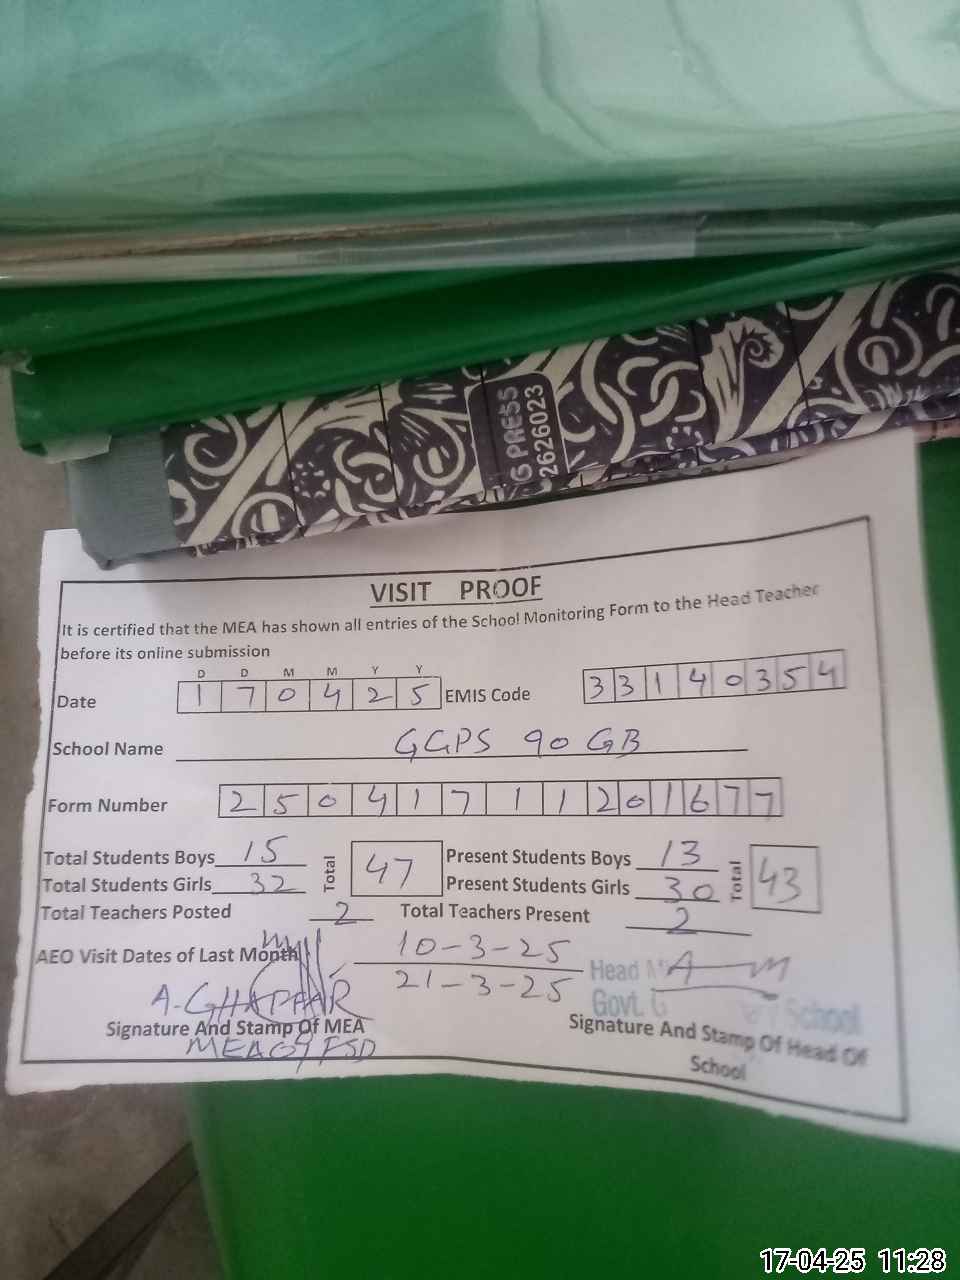 G PRESS
2626023
VISIT PROOF
It is certified that the MEA has shown all entries of the School Monitoring Form to the Head Teacher
before its online submission
D D M M Y Y
Date 1 7 0 4 2 5 EMIS Code 3 3 1 4 0 3 5 4
School Name GGPS 90 GB
Form Number 2 5 0 4 1 7 1 1 2 0 1 6 7 7
Total Students Boys 15 Total 47 Present Students Boys 13 Total 43
Total Students Girls 32 Present Students Girls 30
Total Teachers Posted 2 Total Teachers Present 2
AEO Visit Dates of Last Month 10-3-25
21-3-25
Head
Govt. School
A. GHAFFAR
Signature And Stamp Of MEA Signature And Stamp Of Head Of
School
MEA 07 FSD
17-04-25 11:28